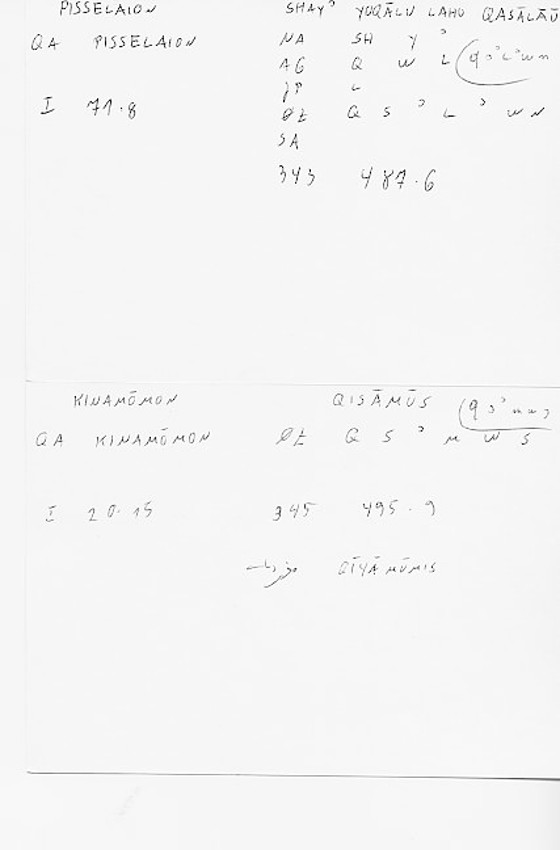 PISSELAION SHAYʾ YUQĀLU LAHO QASĀLĀU
QA PISSELAION NA SH Y ʾ
AG Q W L
L
I 71.8 ØE Q S ʾ L ʾ W N
SA
343 487.6
KINAMŌMON QISĀMŪS
QA KINAMŌMON ØE Q S ʾ M W S
I 20.15 345 495.9
QĪYĀMŪMIS